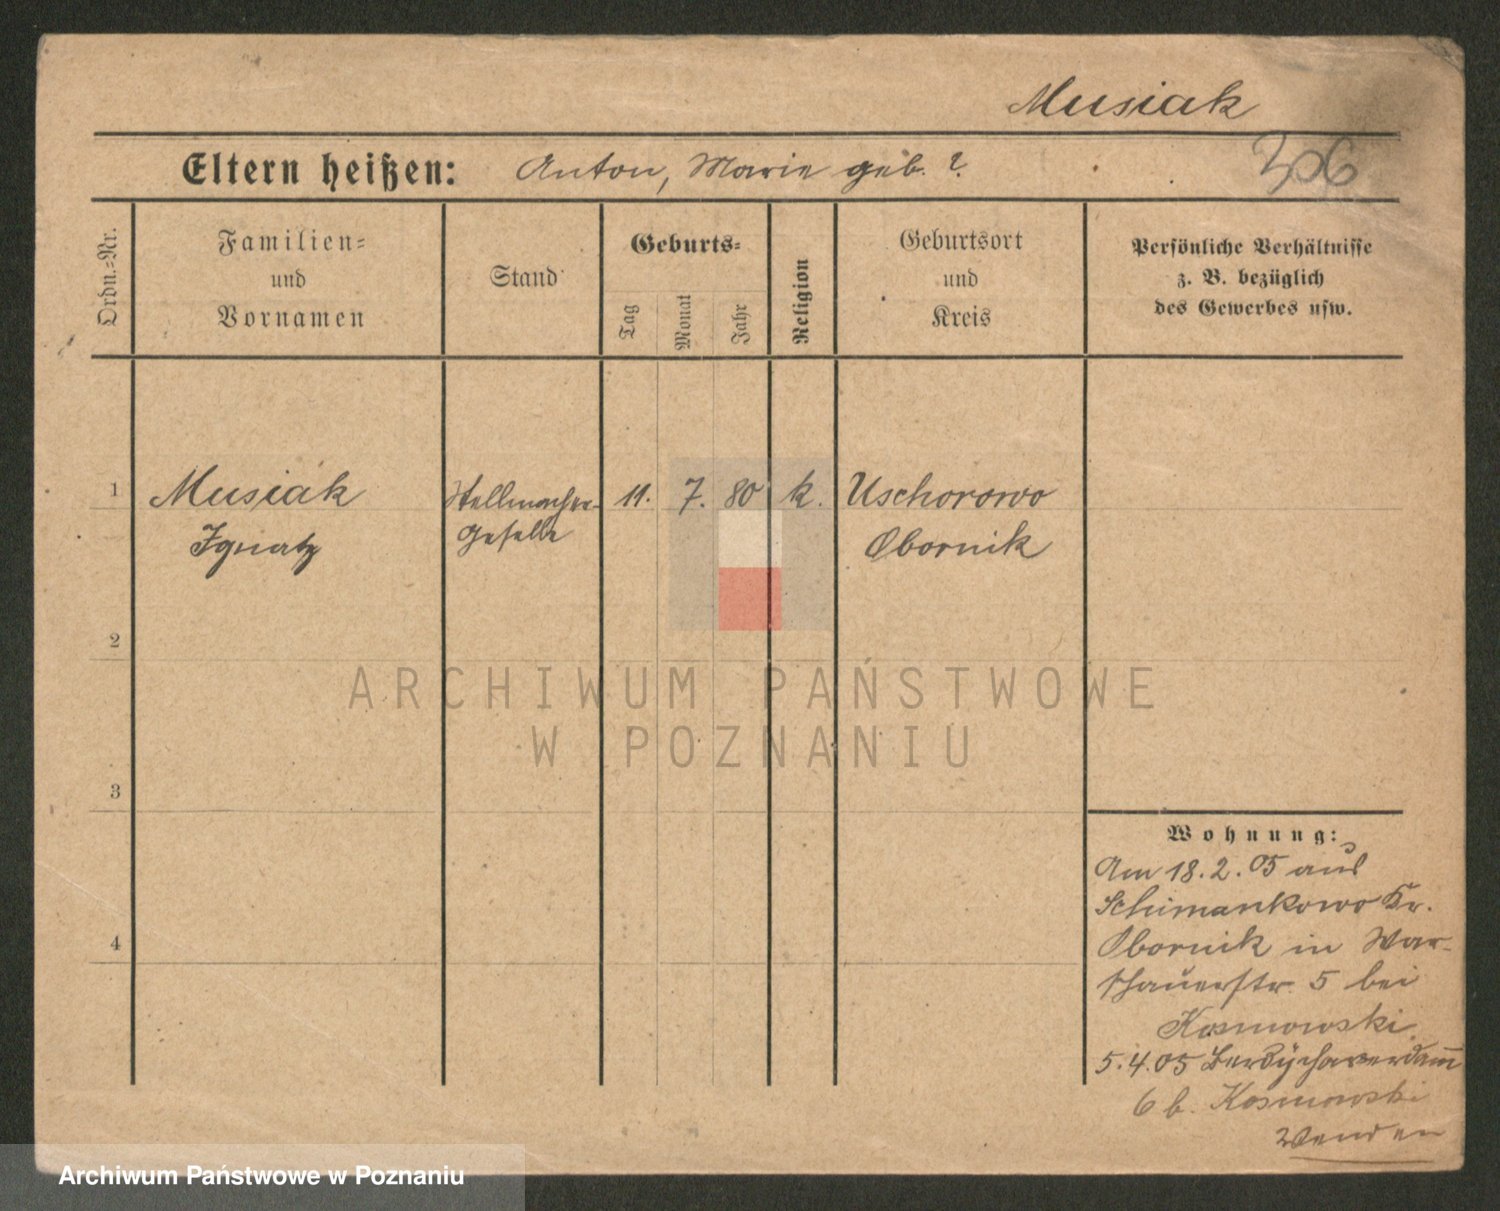 Musiak
306
Eltern heißen: Anton, Marie geb. ?
Ordn.=Nr.
Familien=
und
Vornamen
Stand
Geburts=
Tag
Monat
Jahr
Religion
Geburtsort
und
Kreis
Persönliche Verhältnisse
z. B. bezüglich
des Gewerbes usw.
1 Musiak Stellmacher- 11. 7. 80 k. Uschorowo
Ignatz Geselle Obornik
2
3
4
Wohnung:
Am 18.2.05 aus
Schimankowo Kr.
Obornik in War-
schauerstr. 5 bei
Kosmowski
5.4.05 Berdychowerdamm
6 b. Kosmowski
Wenden
ARCHIWUM PAŃSTWOWE
W POZNANIU
Archiwum Państwowe w Poznaniu